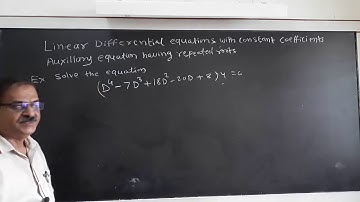 Linear Differential equations with constant coefficients
Auxillary equation having repeated roots
Ex Solve the equation
(D⁴-7D³+18D²-20D+8)y=0